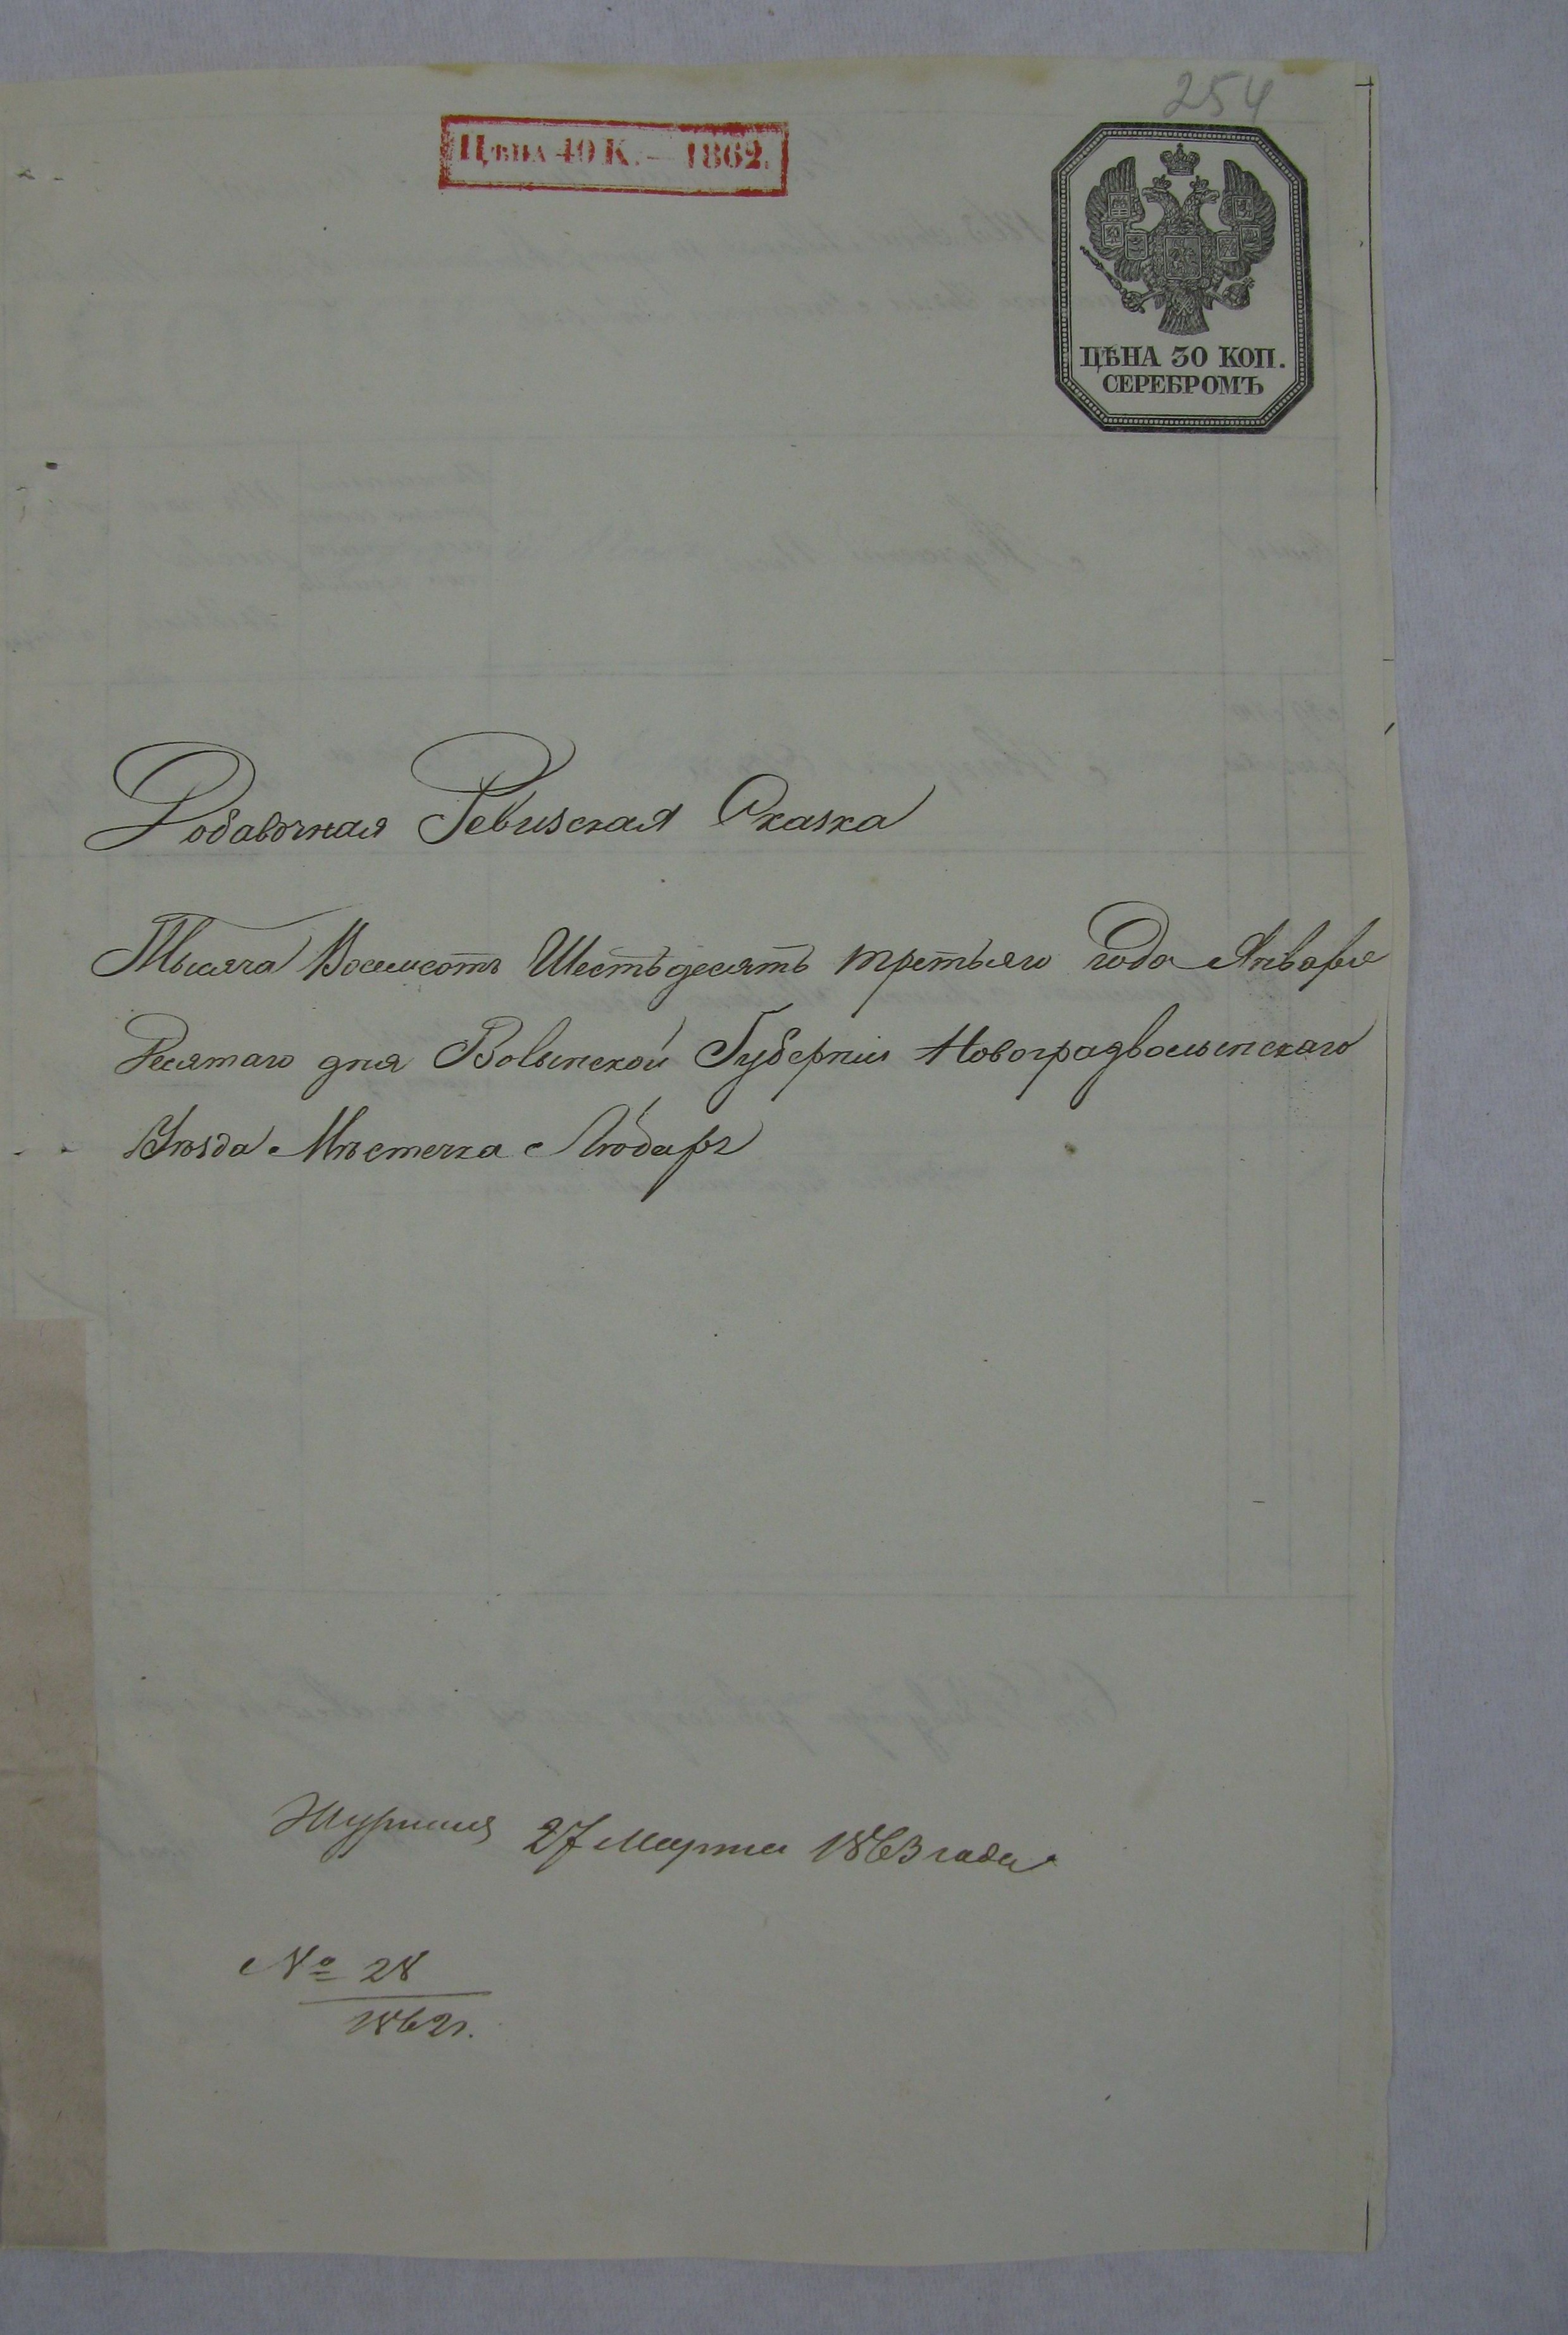 254
ЦѢНА 40 К. — 1862.
ЦѢНА 30 КОП.
СЕРЕБРОМЪ
Добавочная Ревизская Сказка
Тысяча Восемсотъ Шестьдесятъ третьяго года Января
Десятаго дня Волынской Губерніи Новоградволынскаго
Уѣзда Мѣстечка Любаръ
27 Марта 1863 года
№ 28
1862 г.